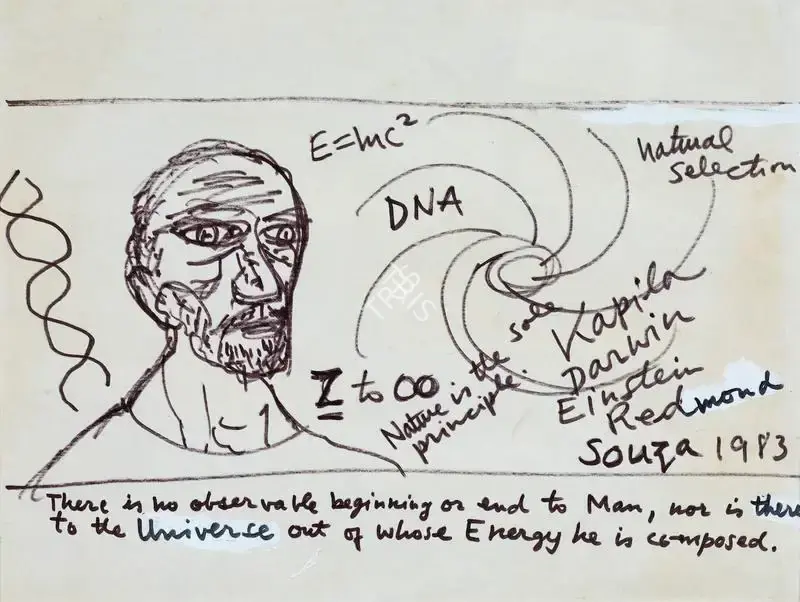 E=mc²
natural
selection
DNA
Z to ∞
Nature is the sole
principle.
Kapila
Darwin
Einstein
Redmond
Souza 1983
There is no observable beginning or end to Man, nor is there
to the Universe out of whose Energy he is composed.